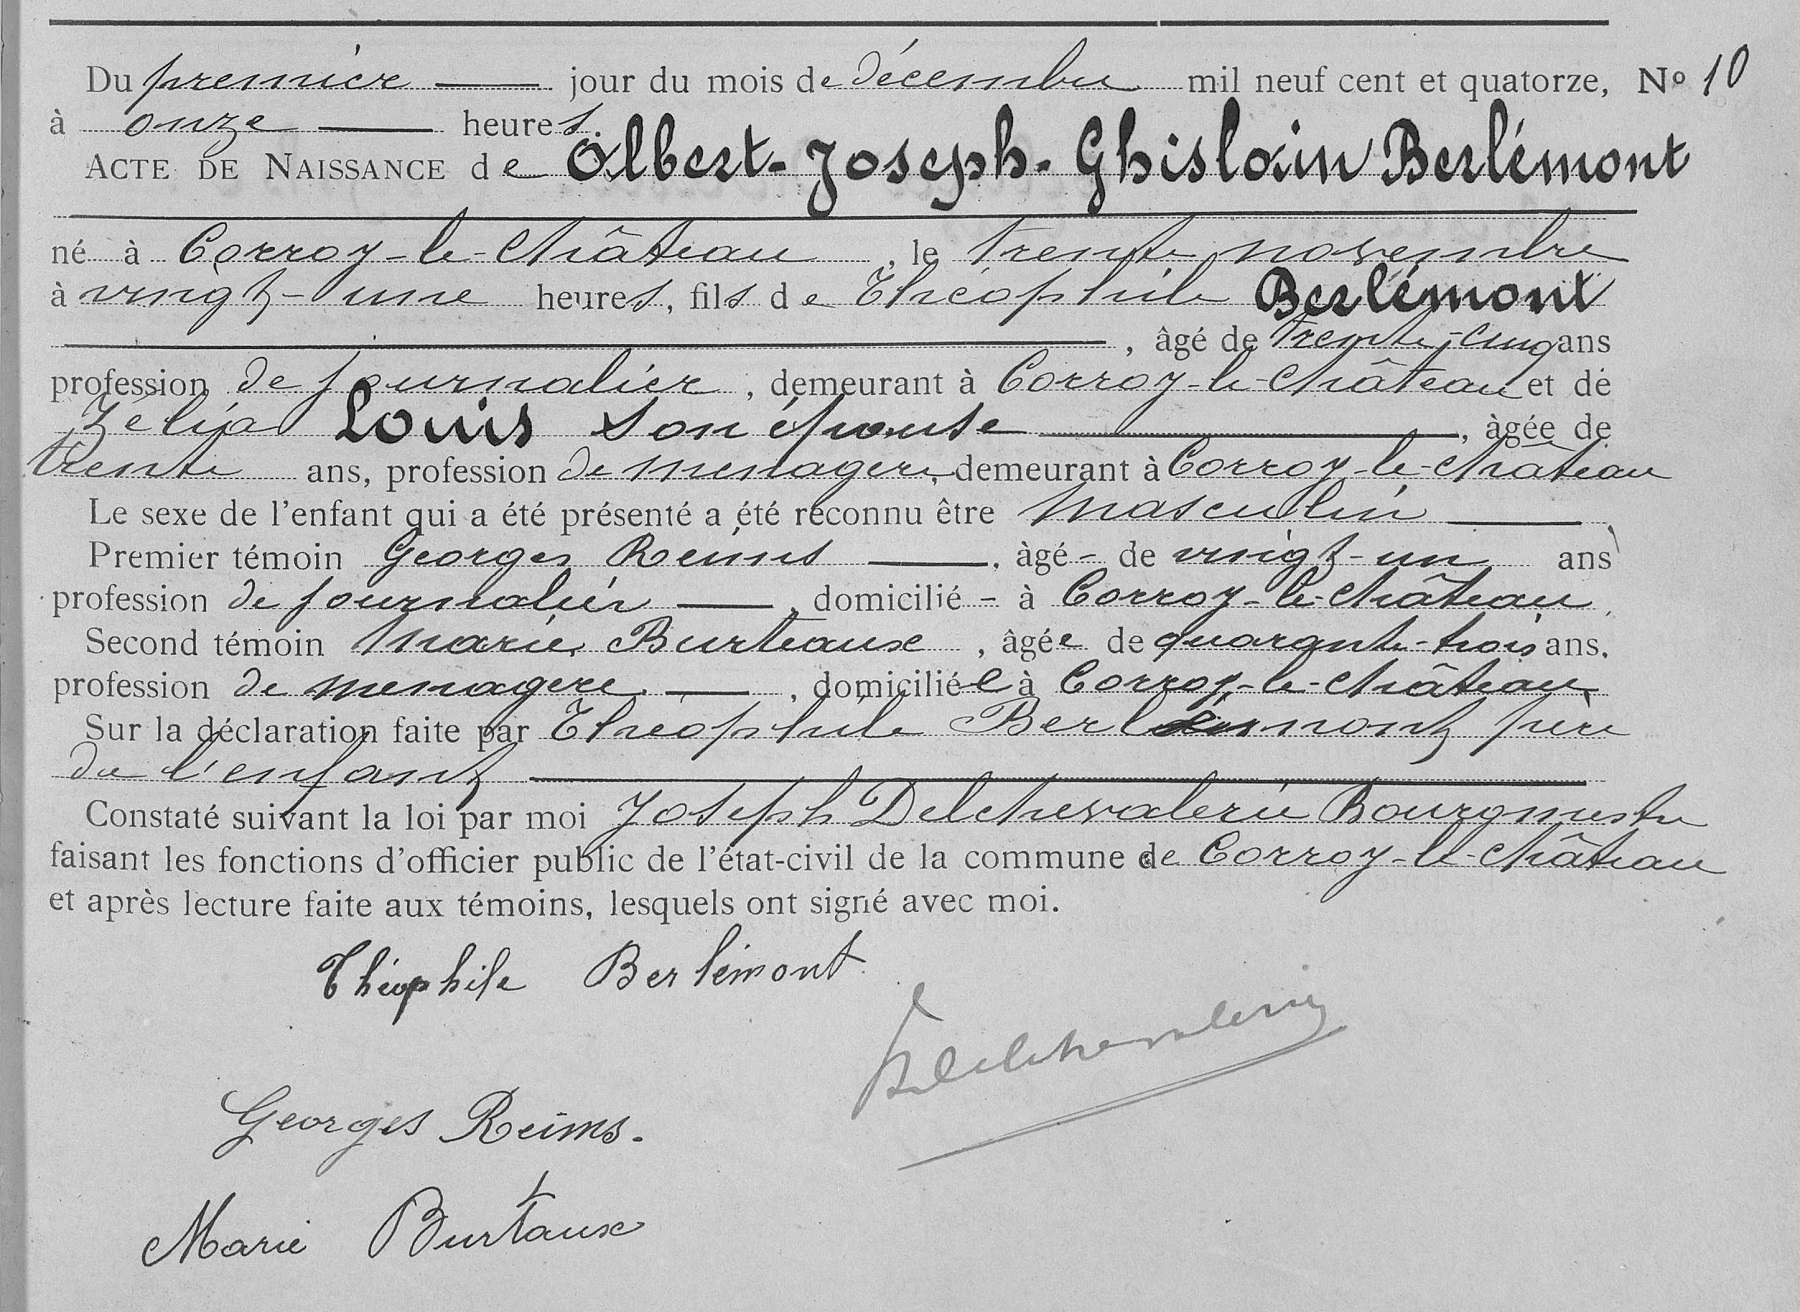 Du premier jour du mois de décembre mil neuf cent et quatorze, No 10
à onze heures.
ACTE DE NAISSANCE de Albert-Joseph-Ghislain Berlémont
né à Corroy-le-Château, le trente novembre
à vingt-une heures, fils de Théophile Berlémont
, âgé de trente-cinq ans
profession de journalier, demeurant à Corroy-le-Château et de
Zelia Louis son épouse, âgée de
trente ans, profession de menagere, demeurant à Corroy-le-Château
Le sexe de l'enfant qui a été présenté a été reconnu être masculin
Premier témoin Georges Reims, âgé - de vingt-un ans
profession de journalier, domicilié - à Corroy-le-Château,
Second témoin Marie Burteaux, âgée de quarante-trois ans.
profession de menagere, domiciliée à Corroy-le-Château.
Sur la déclaration faite par Théophile Berlémont père
de l'enfant
Constaté suivant la loi par moi Joseph Delchevalerie Bourgmestre
faisant les fonctions d'officier public de l'état-civil de la commune de Corroy-le-Château
et après lecture faite aux témoins, lesquels ont signé avec moi.
Théophile Berlémont
Delchevalerie
Georges Reims.
Marie Burtaux